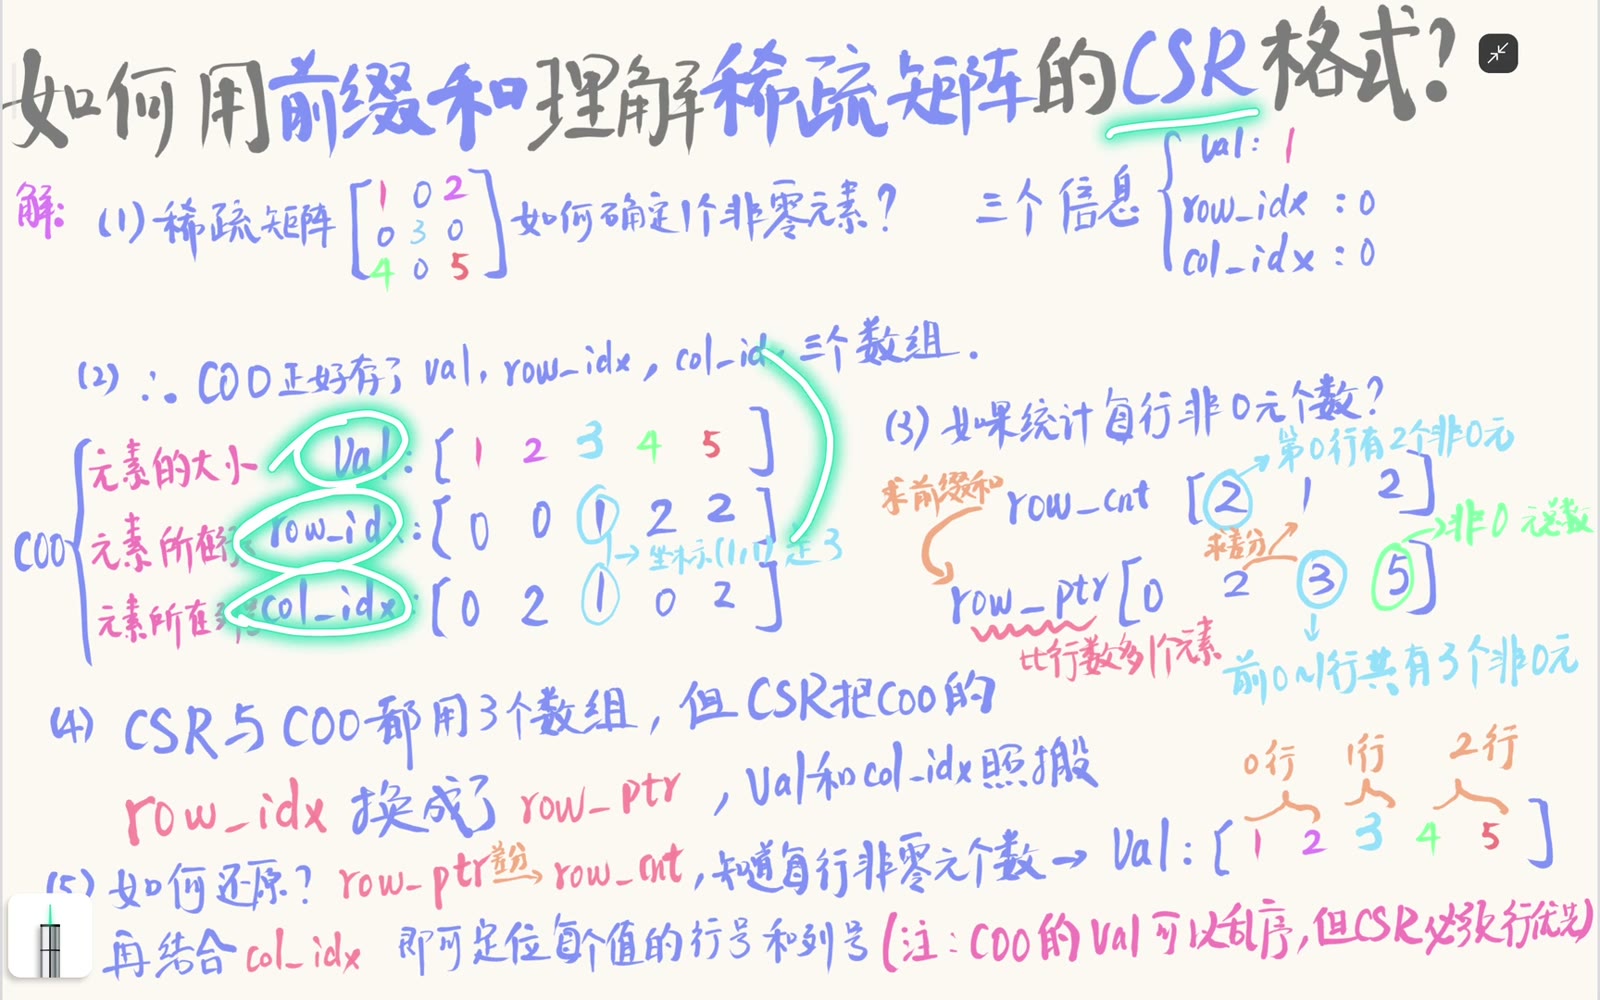 如何用前缀和理解稀疏矩阵的CSR格式?
解: (1) 稀疏矩阵 [1 0 2 如何确定1个非零元素? 三个信息 { val: 1
0 3 0 row_idx : 0
4 0 5] col_idx : 0
(2) ∴ COO正好存了 val, row_idx, col_id 三个数组.
COO { 元素的大小 Val: [ 1 2 3 4 5 ]
元素所在 row_idx: [ 0 0 1 2 2 ]
→坐标(1,1)是3
元素所在 col_idx: [ 0 2 1 0 2 ]
(3) 如果统计每行非0元个数?
→第0行有2个非0元
求前缀和 row_cnt [ 2 1 2 ]
求差分 →非0元总数
row_ptr [ 0 2 3 5 ]
比行数多1个元素
前0~1行共有3个非0元
(4) CSR与COO都用3个数组, 但CSR把COO的
row_idx 换成了 row_ptr , Val和col_idx照搬
(5) 如何还原? row_ptr 差分→ row_cnt, 知道每行非零元个数 → Val: [ 1 2 3 4 5 ]
0行 1行 2行
再结合 col_idx 即可定位每个值的行号和列号 (注: COO的Val可以乱序, 但CSR必须行优先)